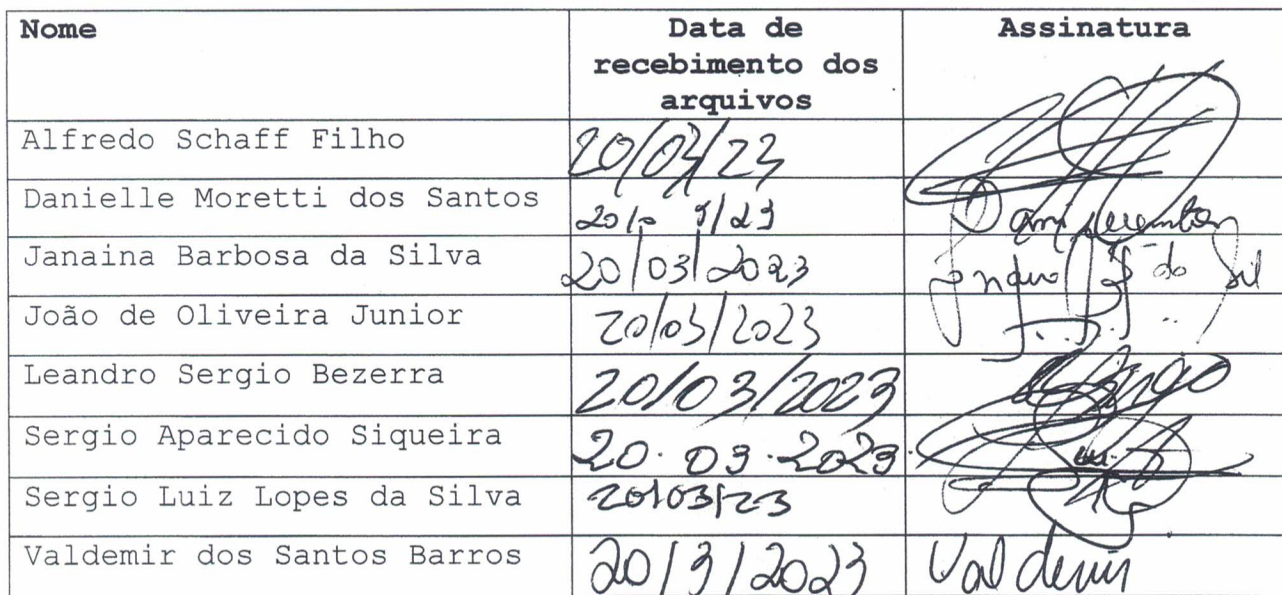 Nome Data de recebimento dos arquivos Assinatura
Alfredo Schaff Filho 20/03/23
Danielle Moretti dos Santos 20/0 3/23
Janaina Barbosa da Silva 20/03/2023
João de Oliveira Junior 20/03/2023
Leandro Sergio Bezerra 20/03/2023
Sergio Aparecido Siqueira 20.03.2023.
Sergio Luiz Lopes da Silva 20/03/23
Valdemir dos Santos Barros 20/3/2023 Valdemir